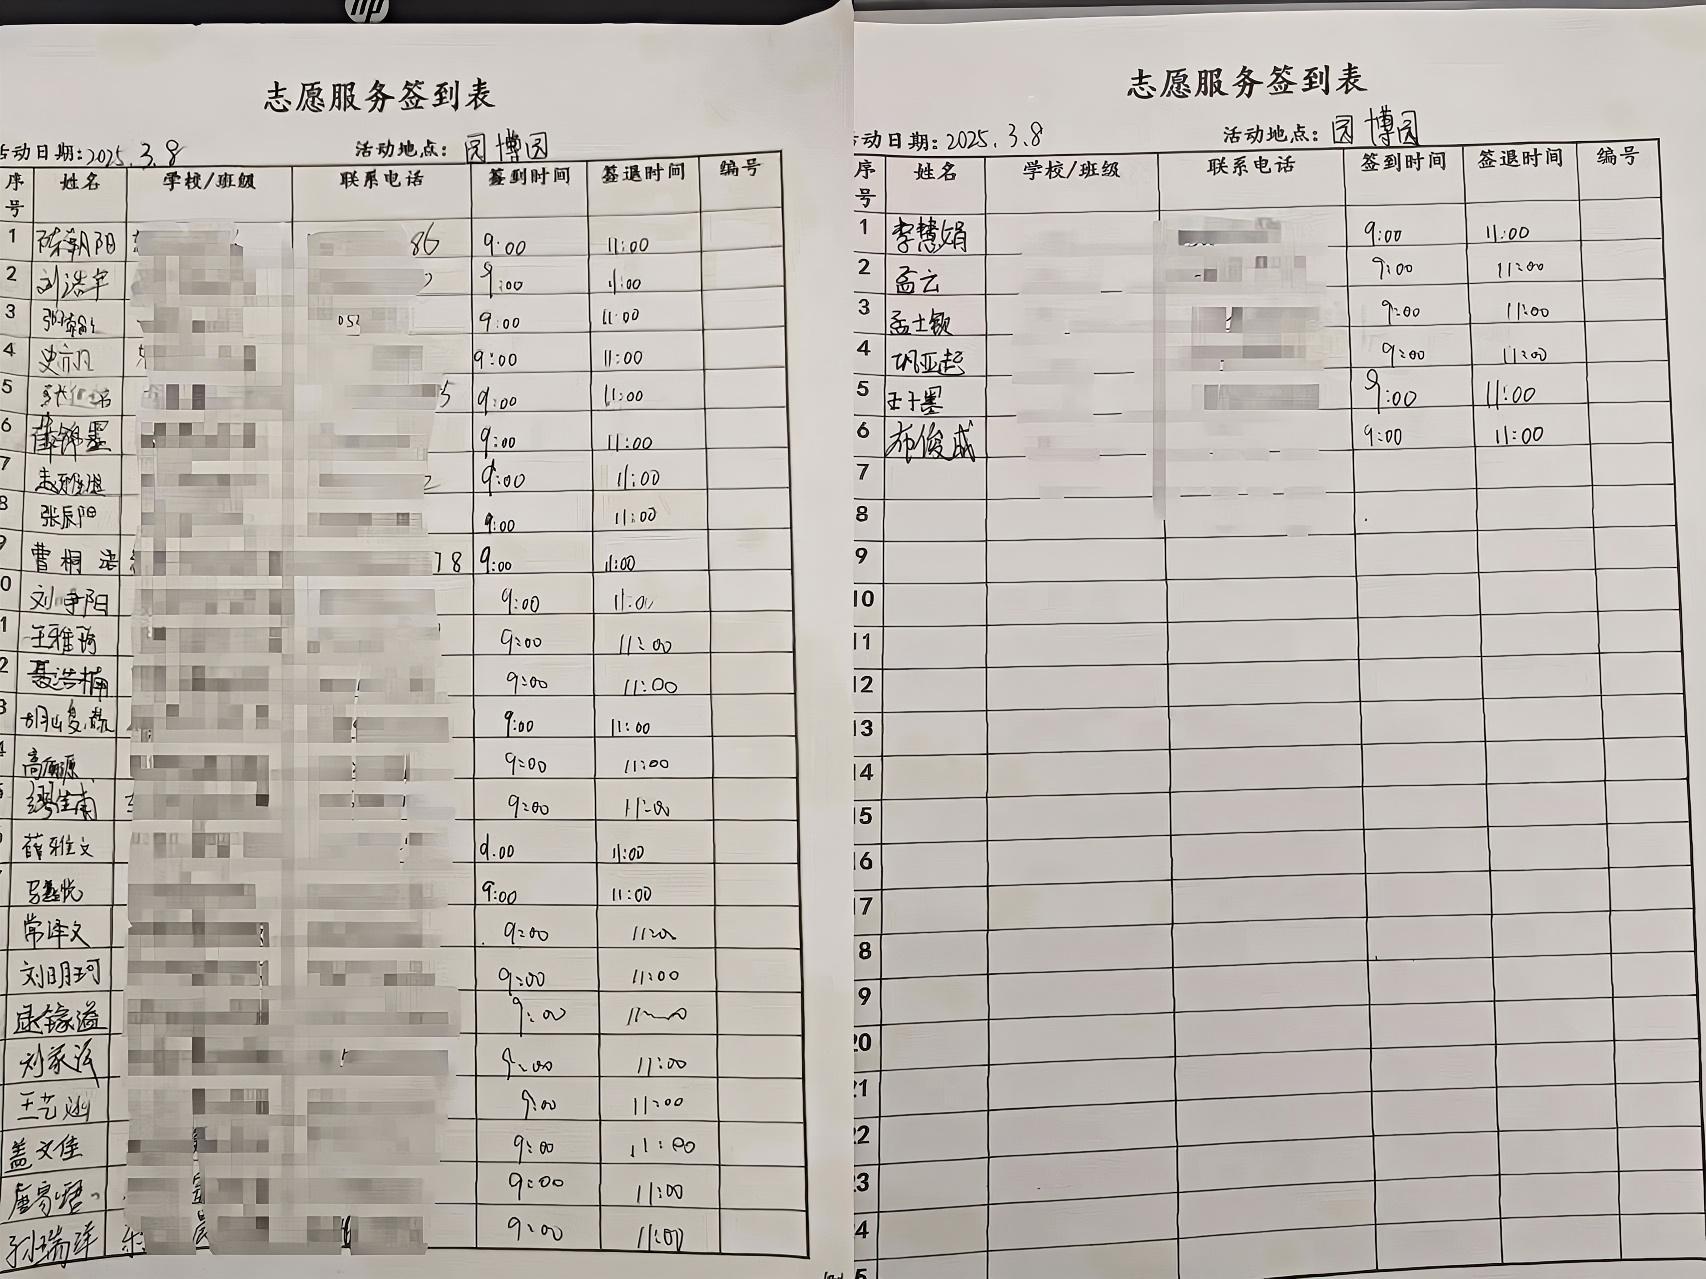 hp
志愿服务签到表
活动日期:2025.3.8 活动地点:园博园
序号 姓名 学校/班级 联系电话 签到时间 签退时间 编号
1 陈朝阳 86 9:00 11:00
2 刘浩宇 9:00 11:00
3 052 9:00 11:00
4 9:00 11:00
5 5 9:00 11:00
6 薛锦墨 9:00 11:00
7 9:00 11:00
8 张辰阳 9:00 11:00
9 曹桐 78 9:00 11:00
0 刘争阳 9:00 11:00
1 王雅琦 9:00 11:00
2 聂浩楠 9:00 11:00
3 9:00 11:00
4 高 源 9:00 11:00
佳南 9:00 11:00
薛雅文 9:00 11:00
9:00 11:00
常泽文 9:00 11:00
刘明珂 9:00 11:00
9:00 11:00
刘家 9:00 11:00
王艺涵 9:00 11:00
盖文佳 9:00 11:00
9:00 11:00
孙瑞 9:00 11:00
志愿服务签到表
活动日期:2025.3.8 活动地点:园博园
序号 姓名 学校/班级 联系电话 签到时间 签退时间 编号
1 李慧娟 9:00 11:00
2 孟云 9:00 11:00
3 孟士钦 9:00 11:00
4 巩亚起 9:00 11:00
5 王于墨 9:00 11:00
6 俊成 9:00 11:00
7
8
9
10
11
12
13
14
15
16
17
8
9
20
21
22
23
4
5